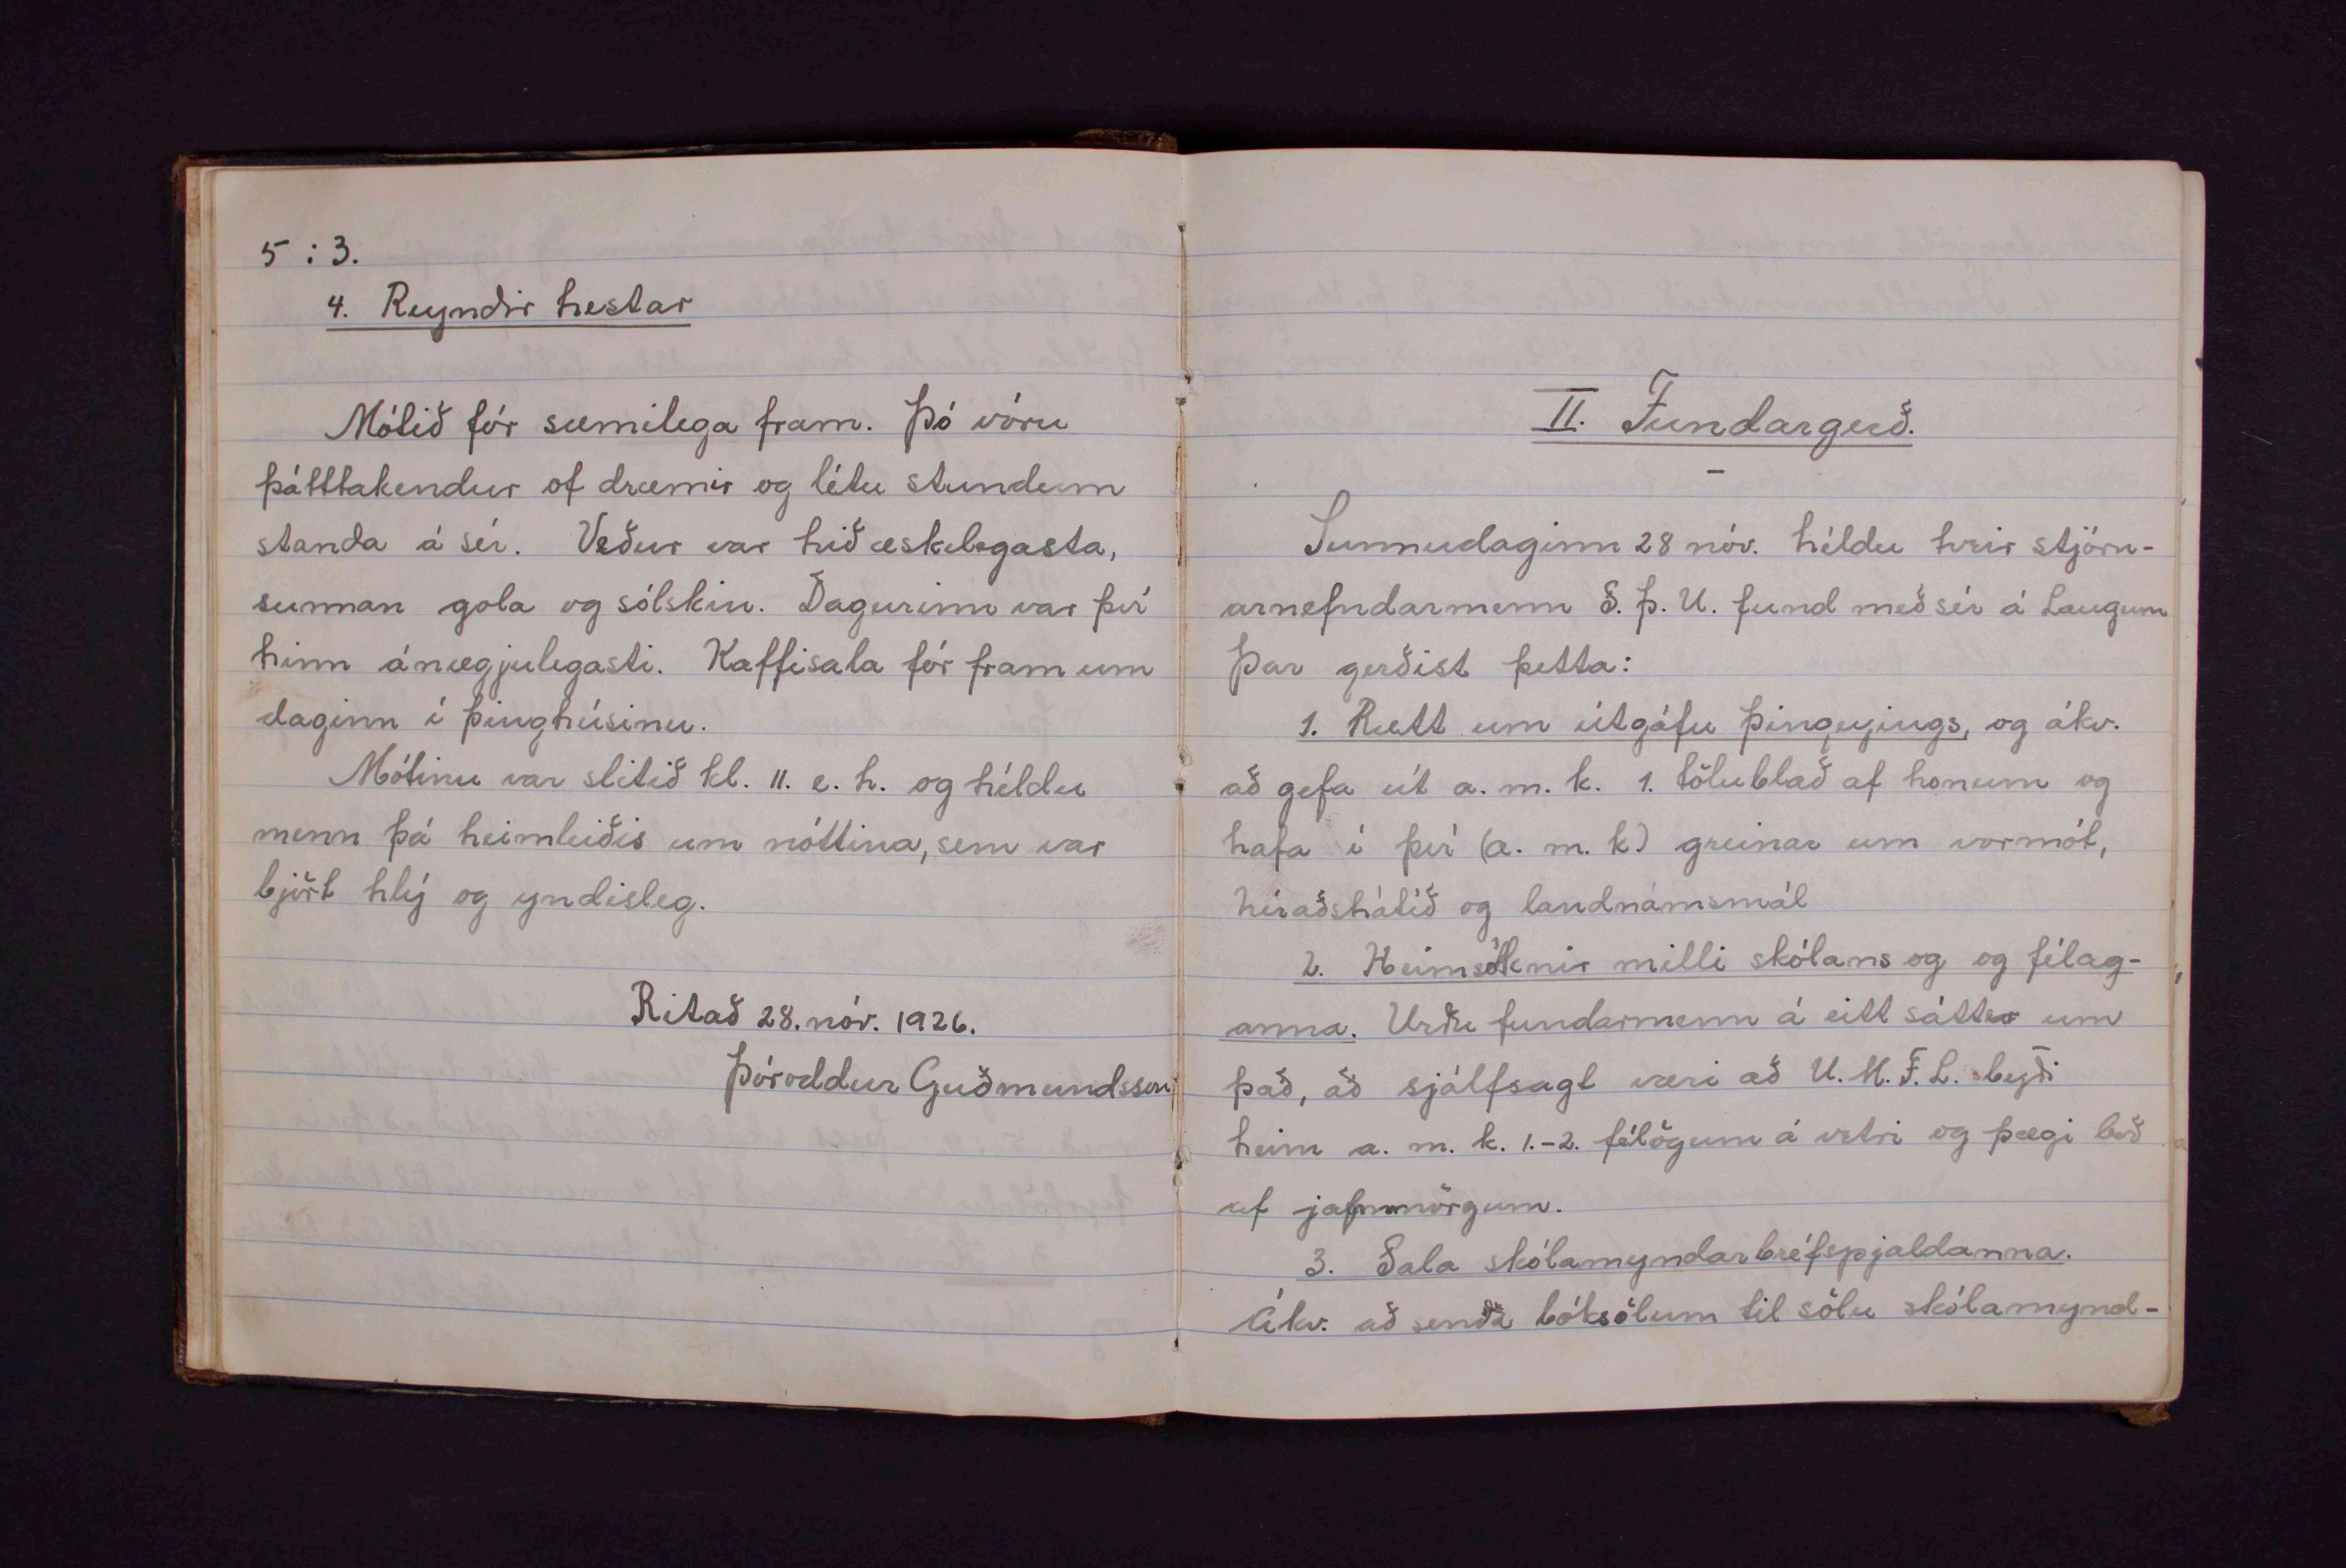 5 : 3.
4. Reyndir hestar
Mótið fór sæmilega fram. Þó vóru
þátttakendur of dræmir og létu stundum
standa á sér. Veður var hið æskilegasta,
sunnan gola og sólskin. Dagurinn var því
hinn ánægjulegasti. Kaffisala fór fram um
daginn í þinghúsinu.
Mótinu var slitið kl. 11. e. h. og héldu
menn þá heimleiðis um nóttina, sem var
björt hlý og yndisleg.
Ritað 28. nóv. 1926.
Þóroddur Guðmundsson
II. Fundargerð.
Sunnudaginn 28 nóv. héldu tveir stjórn-
arnefndarmenn S. Þ. U. fund með sér á Laugum
Þar gerðist þetta:
1. Rætt um útgáfu Þingeyings, og ákv.
að gefa út a. m. k. 1. tölublað af honum og
hafa í því (a. m. k.) greinar um vormót,
héraðshátíð og landnámsmál
2. Heimsóknir milli skólans og og félag-
anna. Urðu fundarmenn á eitt sáttir um
það, að sjálfsagt væri að U. M. F. L. byði
heim a. m. k. 1.-2. félögum á vetri og þægi boð
af jafnmörgum.
3. Sala skólamyndarbréfspjaldanna.
Ákv. að senda bóksölum til sölu skólamynd-